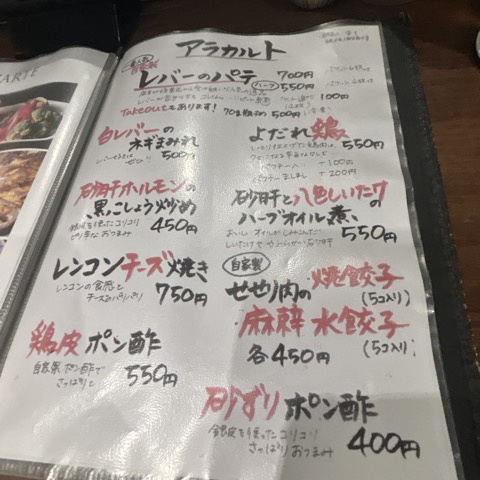 ARTE
アラカルト
自家製
レバーのパテ 700円
ハーフ 550円
100円
Takeoutもあります!
500円
白レバーの
ネギまみれ
500円
よだれ鶏
550円
+100円
+200円
砂肝ホルモンの
黒こしょう炒め
銀皮を使ったコリコリ
ピリ辛なおつまみ
450円
砂肝と八色しいたけ
のハーブオイル煮
550円
レンコンチーズ焼き
レンコンの食感と
チーズのパリパリ
750円
自家製
せせり肉の焼餃子
(5コ入り)
麻辣水餃子
(5コ入り)
各450円
鶏皮ポン酢
自家製ポン酢で
さっぱりと
550円
砂ずりポン酢
銀皮を使ったコリコリ
さっぱりおつまみ
400円